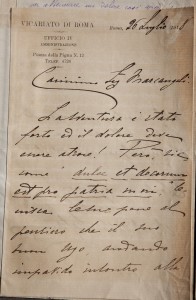 VICARIATO DI ROMA
UFFICIO IV
AMMINISTRAZIONE
Piazza della Pigna N. 12
Roma, 26 Luglio
Carissimo Sig Brascangeli
La sventura è stata
forte ed il dolore deve
essere atroce! Però, sic
come "dulce et decorum
est pro patria mori," 
pensiero che il suo
buon Ugo andando
impavido incontro alla